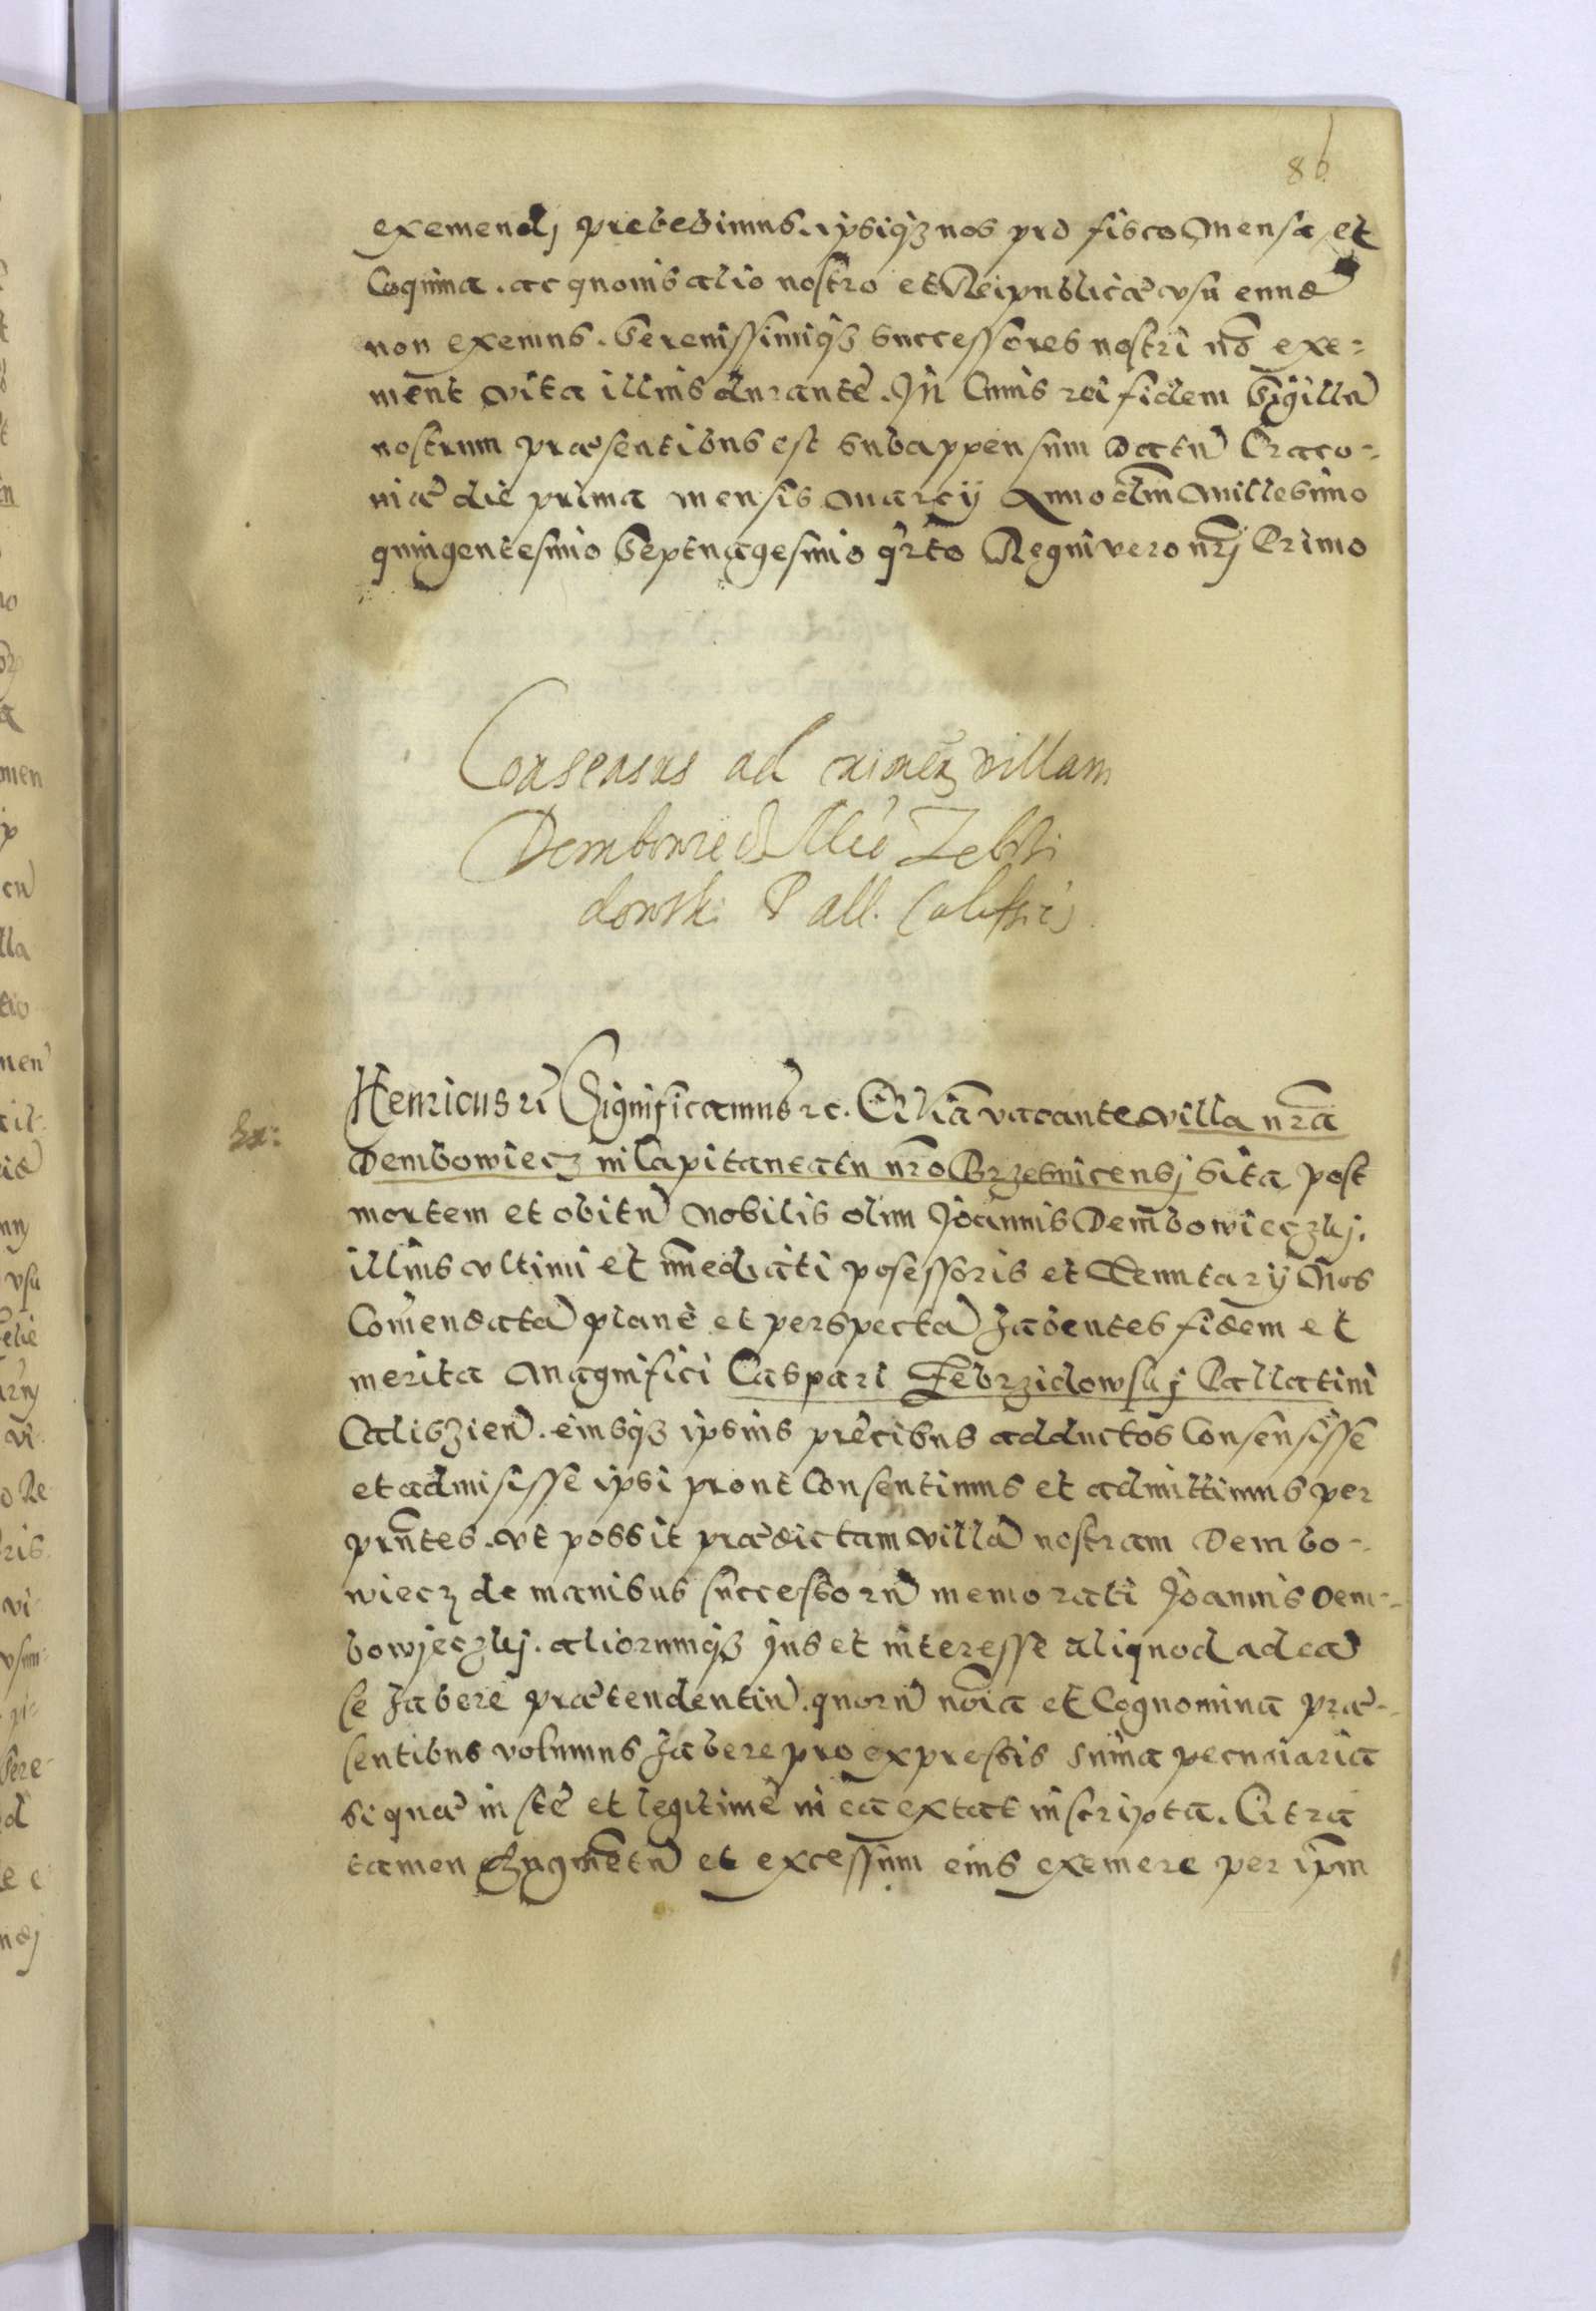 86
exemendj prebebimus. ipsiqz nos pro fisco Mensa et
Coquina. ac quouis alio nostro et Reipublicæ vsu eund
non exemus. Serenissimiqz Successores nostri no exe=
ment vita illius durante. In Cuius rei fidem Sigillu
nostrum præsentibus est subappensum Datu Craco-
uiæ die prima mensis Marcij Anno dnj Millesimo
quingentesimo Septuagesimo qrto Regni vero nrj Primo
Consensus ad villam
Dembowiecz Zebrzi
dowski Pall. Calissie
Henricus rc Significamus rc. Quia vacante villa nra
Ex:
Dembowiecz in Capitaneatu nro Brzesnicensj sita post
mortem et obitu Nobilis olim Joannis Dembowieczkj.
illius vltimi et imediati posessoris et Tenutarij Nos
Comendata plane et perspecta habentes fidem et
merita Magnifici Caspari Zebrzidowskj Pallatini
Caliszien. eiusqz ipsius precibus adductos Consensisse
et admisisse ipsi prout Consentimus et admittimus per
prntes. vt possit prædictam villa nostram Dembo-
wiecz de manibus successoru memorati Joannis Dem-
bowieczkj. aliorumqz Jus et interesse aliquod ad ea
se habere prætendentiu. quoru noia et Cognomina præ-
sentibus volumus habere pro expressis suma pecuniaria
si quæ iuste et legitime in ea extat inscripta. Citra
tamen Augmentu et excessum eius exemere per ipm